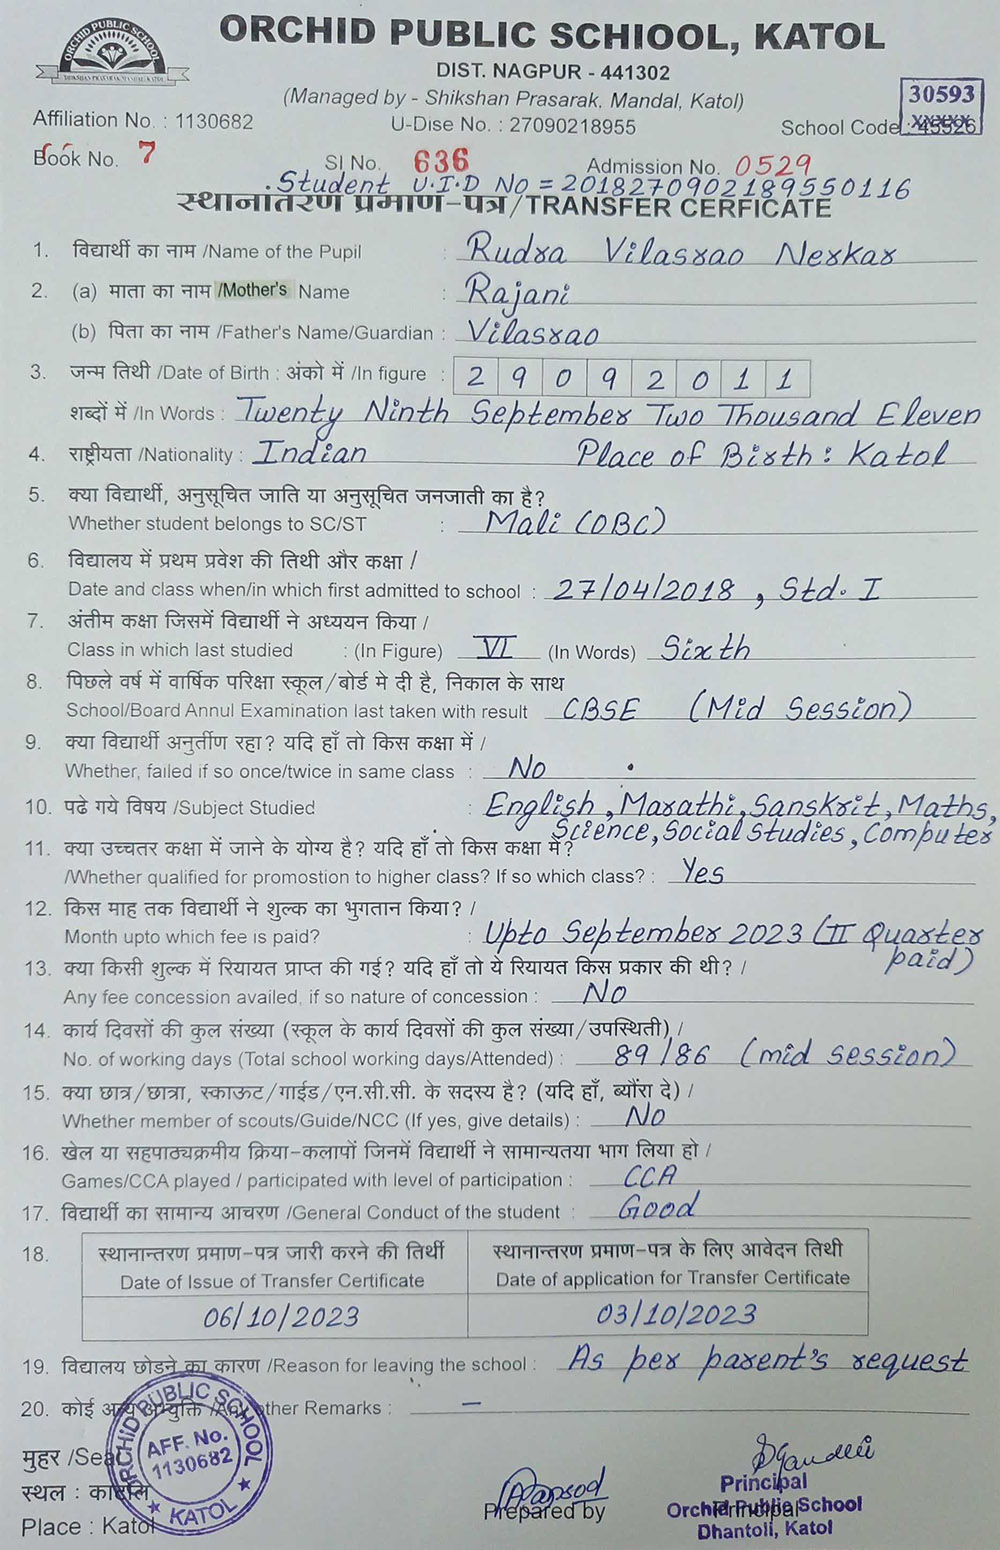 ORCHID PUBLIC SCHOOL
SHIKSHAN PRASARAK MANDAL KATOL
ORCHID PUBLIC SCHIOOL, KATOL
DIST. NAGPUR - 441302
(Managed by - Shikshan Prasarak, Mandal, Katol)
30593
Affiliation No. : 1130682 U-Dise No. : 27090218955 School Code : 45526
Book No. 7 SI No. 636 Admission No. 0529
Student U.I.D No = 2018270902189550116
स्थानांतरण प्रमाण-पत्र/TRANSFER CERFICATE
1. विद्यार्थी का नाम /Name of the Pupil : Rudra Vilasrao Nerkar
2. (a) माता का नाम /Mother's Name : Rajani
(b) पिता का नाम /Father's Name/Guardian : Vilasrao
3. जन्म तिथी /Date of Birth : अंको में /In figure : 2 9 0 9 2 0 1 1
शब्दों में /In Words : Twenty Ninth September Two Thousand Eleven
4. राष्ट्रीयता /Nationality : Indian Place of Birth : Katol
5. क्या विद्यार्थी, अनुसूचित जाति या अनुसूचित जनजाती का है?
Whether student belongs to SC/ST : Mali (OBC)
6. विद्यालय में प्रथम प्रवेश की तिथी और कक्षा /
Date and class when/in which first admitted to school : 27/04/2018 , Std. I
7. अंतीम कक्षा जिसमें विद्यार्थी ने अध्ययन किया /
Class in which last studied : (In Figure) VI (In Words) Sixth
8. पिछले वर्ष में वार्षिक परिक्षा स्कूल/बोर्ड मे दी है, निकाल के साथ
School/Board Annul Examination last taken with result CBSE (Mid Session)
9. क्या विद्यार्थी अनुर्तीण रहा? यदि हाँ तो किस कक्षा में /
Whether, failed if so once/twice in same class : No
10. पढे गये विषय /Subject Studied : English, Marathi, Sanskrit, Maths,
Science, Social Studies, Computer
11. क्या उच्चतर कक्षा में जाने के योग्य है? यदि हाँ तो किस कक्षा में?
/Whether qualified for promostion to higher class? If so which class? : Yes
12. किस माह तक विद्यार्थी ने शुल्क का भुगतान किया? /
Month upto which fee is paid? : Upto September 2023 (II Quarter
paid)
13. क्या किसी शुल्क में रियायत प्राप्त की गई? यदि हाँ तो ये रियायत किस प्रकार की थी? /
Any fee concession availed, if so nature of concession : No
14. कार्य दिवसों की कुल संख्या (स्कूल के कार्य दिवसों की कुल संख्या/उपस्थिती) /
No. of working days (Total school working days/Attended) : 89/86 (mid session)
15. क्या छात्र/छात्रा, स्काऊट/गाईड/एन.सी.सी. के सदस्य है? (यदि हाँ, ब्यौंरा दे) /
Whether member of scouts/Guide/NCC (If yes, give details) : No
16. खेल या सहपाठ्यक्रमीय क्रिया-कलापों जिनमें विद्यार्थी ने सामान्यतया भाग लिया हो /
Games/CCA played / participated with level of participation : CCA
17. विद्यार्थी का सामान्य आचरण /General Conduct of the student : Good
18. स्थानान्तरण प्रमाण-पत्र जारी करने की तिर्थी स्थानान्तरण प्रमाण-पत्र के लिए आवेदन तिथी
Date of Issue of Transfer Certificate Date of application for Transfer Certificate
06/10/2023 03/10/2023
19. विद्यालय छोड़ने का कारण /Reason for leaving the school : As per parent's request
20. कोई अन्य अभ्युक्ति /Any other Remarks : –
मुहर /Seal
स्थल : काटोल
Place : Katol
ORCHID PUBLIC SCHOOL
AFF. No.
1130682
★ KATOL ★
Prepared by
Principal
Principal
Orchid Public School
Dhantoli, Katol